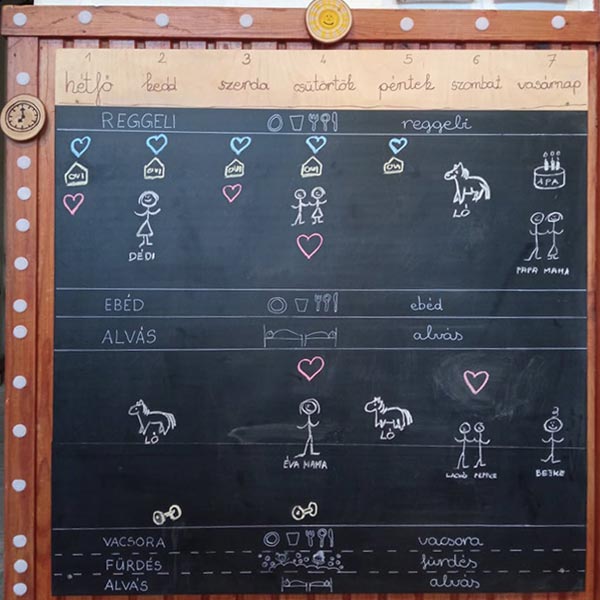 1 2 3 4 5 6 7
hétfő kedd szerda csütörtök péntek szombat vasárnap
REGGELI reggeli
OVI OVI OVI OVI OVI
DÉDI LÓ APA
PAPA MAMA
EBÉD ebéd
ALVÁS alvás
LÓ ÉVA MAMA LÓ
VACSORA vacsora
FÜRDÉS fürdés
ALVÁS alvás